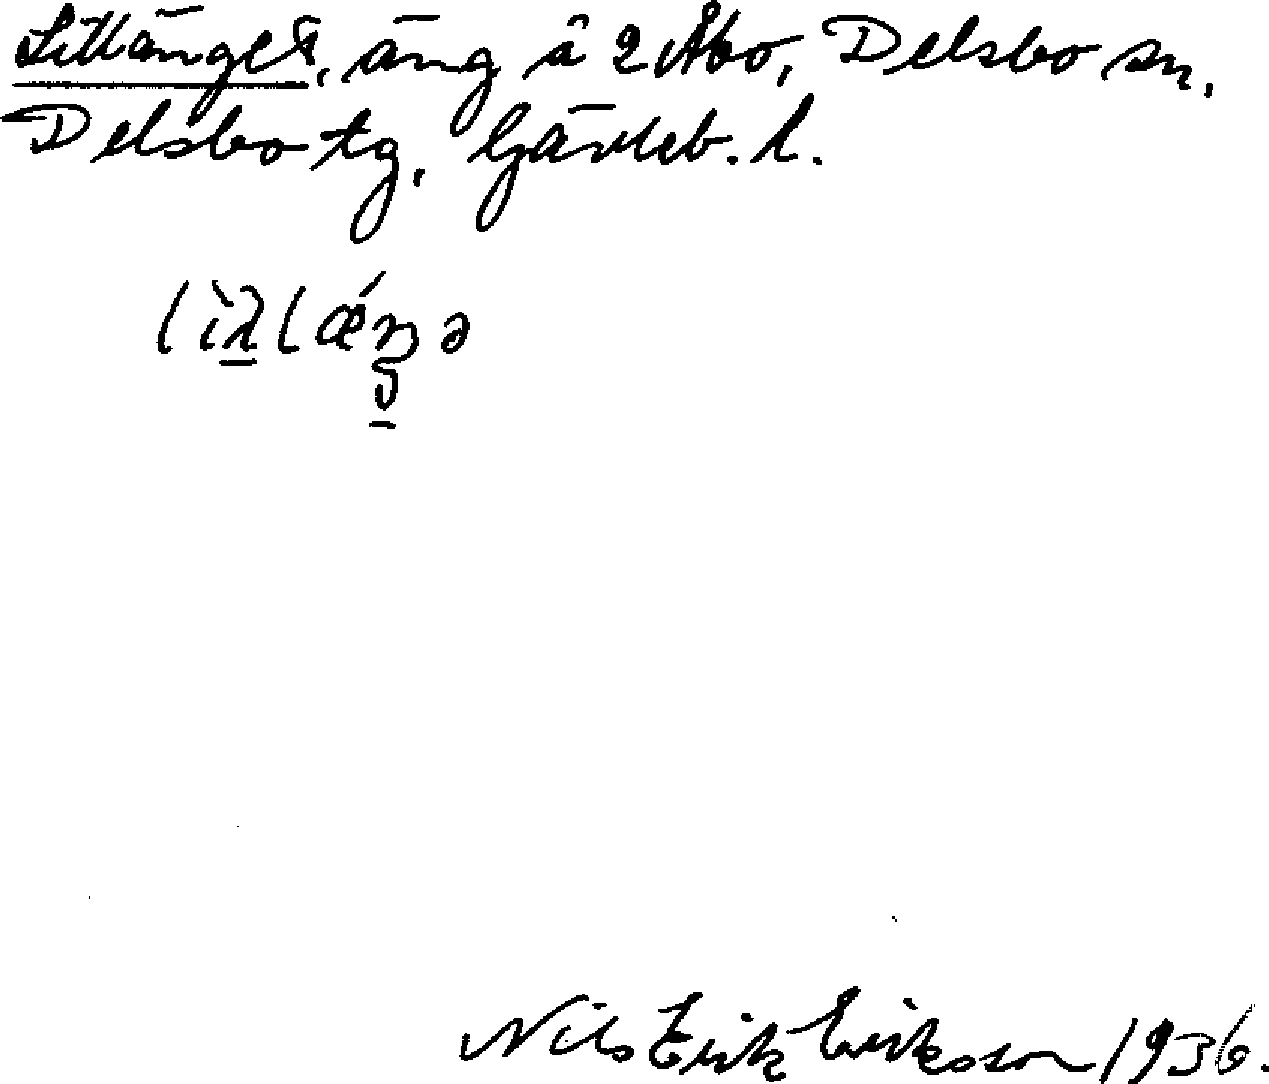 Lillänget, äng å 2 Åbo, Delsbo sn.
Delsbo tg, Gävleb. l.
Nils Erik Eriksson 1936.